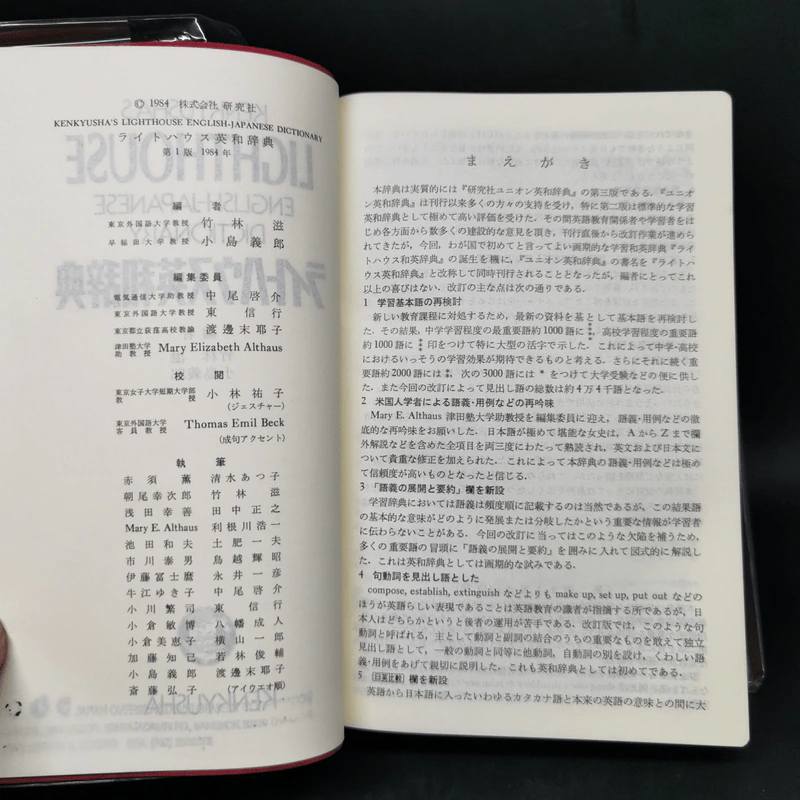 © 1984 株式会社 研究社
KENKYUSHA'S LIGHTHOUSE ENGLISH-JAPANESE DICTIONARY
ライトハウス英和辞典
第1版 1984年
編者
東京外国語大学教授 竹林 滋
早稲田大学教授 小島義郎
編集委員
電気通信大学助教授 中尾啓介
東京外国語大学教授 東信行
東京都立荻窪高校教諭 渡邊末耶子
津田塾大学助教授 Mary Elizabeth Althaus
校閲
東京女子大学短期大学部教授 小林祐子
(ジェスチャー)
東京外国語大学客員教授 Thomas Emil Beck
(成句アクセント)
執筆
赤須 薫 清水あつ子
朝尾幸次郎 竹林 滋
浅田幸善 田中正之
Mary E. Althaus 利根川浩一
池田和夫 土肥一夫
市川泰男 鳥越輝昭
伊藤冨士麿 永井一彦
牛江ゆき子 中尾啓介
小川繁司 東信行
小倉敏博 八幡成人
小倉美恵子 横山一郎
加藤知己 若林俊輔
小島義郎 渡邊末耶子
斎藤弘子 (アイウエオ順)
まえがき
本辞典は実質的には『研究社ユニオン英和辞典』の第三版である.『ユニオ
ン英和辞典』は刊行以来多くの方々の支持を受け, 特に第二版は標準的な学習
英和辞典として極めて高い評価を受けた. その間英語教育関係者や学習者をは
じめ各方面から数多くの建設的な意見を頂き, 刊行直後から改訂作業が進めら
れてきたが, 今回, わが国で初めてと言ってよい画期的な学習和英辞典『ライ
トハウス和英辞典』の誕生を機に,『ユニオン英和辞典』の書名を『ライトハ
ウス英和辞典』と改称して同時刊行されることとなったが, 編者にとってこれ
以上の喜びはない. 改訂の主な点は次の通りである.
1 学習基本語の再検討
新しい教育課程に対応するため, 最新の資料を基として基本語を再検討し
た. その結果, 中学学習程度の最重要語約1000語に⁑, 高校学習程度の重要語
約1000語に⁑印をつけて特に大型の活字で示した. これによって中学・高校
におけるいっそうの学習効果が期待できるものと考える. さらにそれに続く重
要語約2000語には⁑, 次の3000語には * をつけて大学受験などの便に供し
た. また今回の改訂によって見出し語の総数は約4万4千語となった.
2 米国人学者による語義・用例などの再吟味
Mary E. Althaus 津田塾大学助教授を編集委員に迎え, 語義・用例などの徹
底的な再吟味をお願いした. 日本語が極めて堪能な女史は, AからZまで欄
外解説などを含めた全項目を両三度にわたって熟読され, 英文および日本文に
ついて貴重な修正を加えられた. これによって本辞典の語義・用例などは極め
て信頼度が高いものとなったと信じる.
3 「語義の展開と要約」欄を新設
学習辞典においては語義は頻度順に記載するのは当然であるが, この結果語
の基本的な意味がどのように発展または分岐したかという重要な情報が学習者
に伝わらないことがある. 今回の改訂に当ってはこのような欠陥を補うため,
多くの重要語の冒頭に「語義の展開と要約」を囲みに入れて図式的に解説し
た. これは英和辞典としては画期的な試みである.
4 句動詞を見出し語とした
compose, establish, extinguish などよりも make up, set up, put out などの
ほうが英語らしい表現であることは英語教育の識者が指摘する所であるが, 日
本人はどちらかというと後者の運用が苦手である. 改訂版では, このような句
動詞と呼ばれる, 主として動詞と副詞の結合のうちの重要なものを敢えて独立
見出し語とし, 一般の動詞と同等に他動詞, 自動詞の別を設け, くわしい語
義・用例をあげて親切に説明した. これも英和辞典としては初めてである.
5 日英比較 欄を新設
英語から日本語に入ったいわゆるカタカナ語と本来の英語の意味との間に大